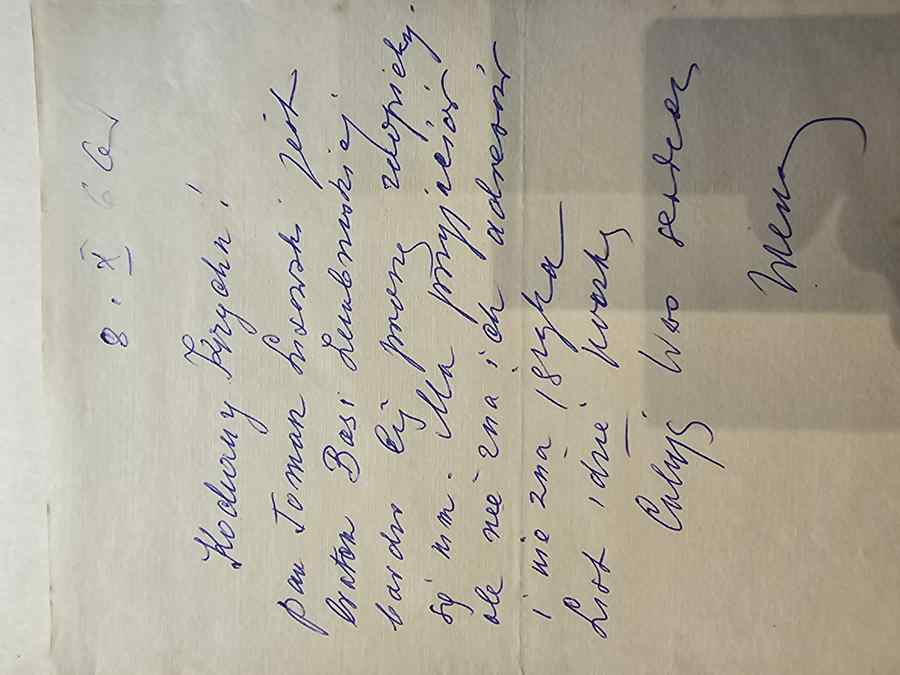 8. X 64
Kochany Krychu!
pan Roman Lisowski jest
bratem Basi Lembowskiej
bardzo Cię proszę zaopiekuj
się nim. Ma przyjaciół
ale nie zna ich adresów
i nie zna języka
List idzie pocztą
Całuję Was serdecz